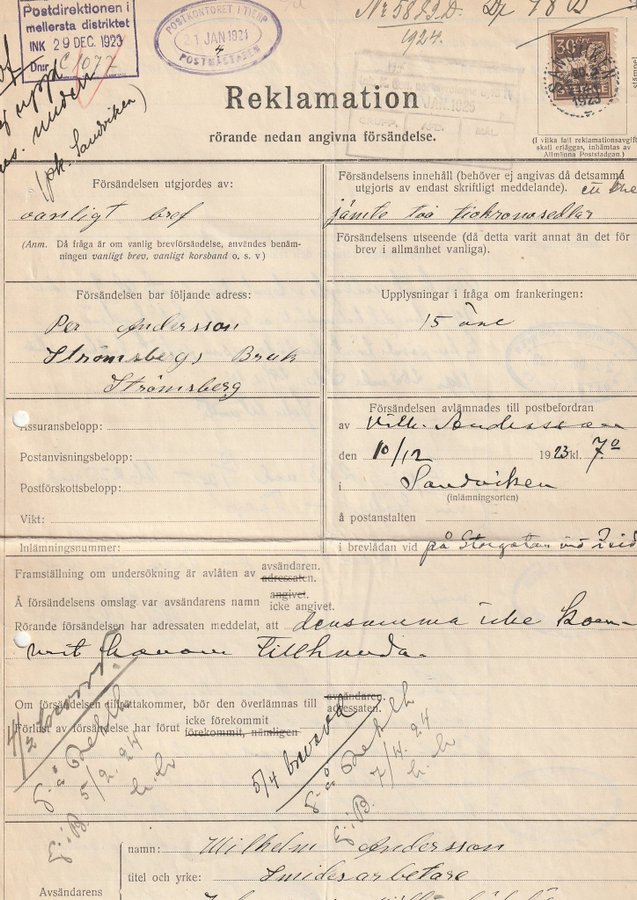 Postdirektionen i
mellersta distriktet
INK 29 DEC. 1923
Dnr C 1077
POSTKONTORET I TIERP
21 JAN 1921
POSTMÄSTAREN
Nr 5883 D. Dp 78 D
1924.
30
SANDVIKEN
1923
(pk. Sandviken)
Reklamation
rörande nedan angivna försändelse.
(I vilka fall reklamationsavgift
skall erläggas, inhämtas av
Allmänna Poststadgan.)
Försändelsen utgjordes av:
vanligt bref
(Anm. Då fråga är om vanlig brevförsändelse, användes benäm-
ningen vanligt brev, vanligt korsband o. s. v)
Försändelsens innehåll (behöver ej angivas då detsamma
utgjorts av endast skriftligt meddelande).
jämte två tiokronosedlar
Försändelsens utseende (då detta varit annat än det för
brev i allmänhet vanliga).
Försändelsen bar följande adress:
Per Andersson
Strömsbergs Bruk
Strömsberg
Upplysningar i fråga om frankeringen:
15 öre
Assuransbelopp:
Postanvisningsbelopp:
Postförskottsbelopp:
Vikt:
Inlämningsnummer:
Försändelsen avlämnades till postbefordran
av Vilh. Andersson
den 10/12 1923 kl. 7.0
i Sandviken
(inlämningsorten)
å postanstalten
i brevlådan vid på Storgatan vid
Framställning om undersökning är avlåten av avsändaren.
adressaten.
Å försändelsens omslag var avsändarens namn angivet.
icke angivet.
Rörande försändelsen har adressaten meddelat, att densamma icke kom-
mit honom tillhanda.
Om försändelsen tillrättakommer, bör den överlämnas till avsändaren.
adressaten.
Förlust av försändelse har förut icke förekommit
förekommit, nämligen
4/2
5/2 24
5/4
7/4. 24
Avsändarens
namn: Wilhelm Andersson
titel och yrke: Smidesarbetare